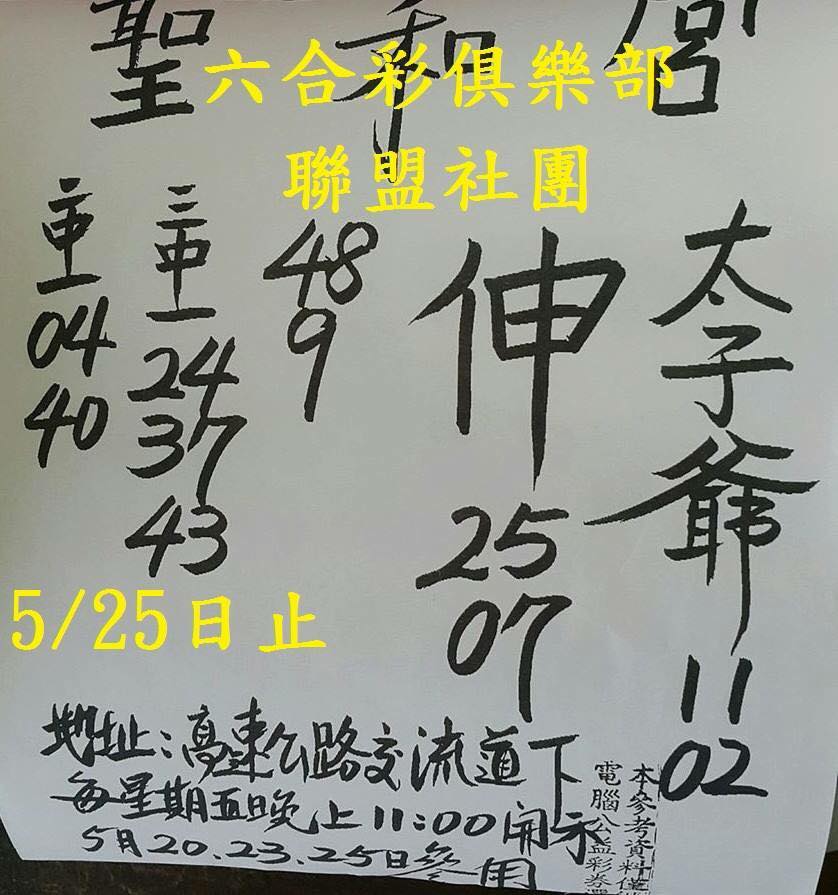 聖和宮
六合彩俱樂部
聯盟社團
太子爺
11
02
伸
25
07
48
9
三中一
24
37
43
二中一
04
40
5/25日止
地址:高速公路交流道下
每星期五晚上11:00開示
5月20.23.25日參用
本參考資料僅
電腦公益彩券